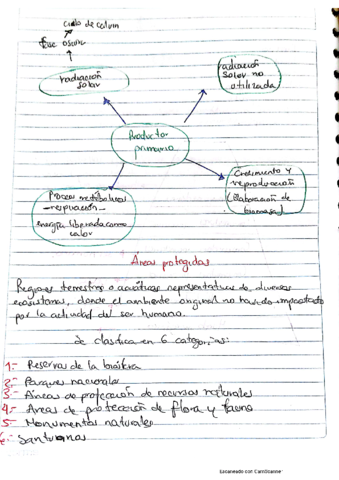 Ciclo de Calvin
fase oscura
radiación
solar
radiación
solar no
utilizada
Productor
primario
Procesos metabólicos
respiración
energía liberada como
calor
Crecimiento y
reproducción
(elaboración de
biomasa)
Áreas protegidas
Regiones terrestres o acuáticas representativas de diversos
ecosistemas, donde el ambiente original no ha sido impactado
por la actividad del ser humano.
Se clasifica en 6 categorías:
1.- Reservas de la biosfera
2.- Parques nacionales
3.- Áreas de protección de recursos naturales
4.- Areas de protección de flora y fauna
5.- Monumentos naturales
6.- Santuarios
Escaneado con CamScanner